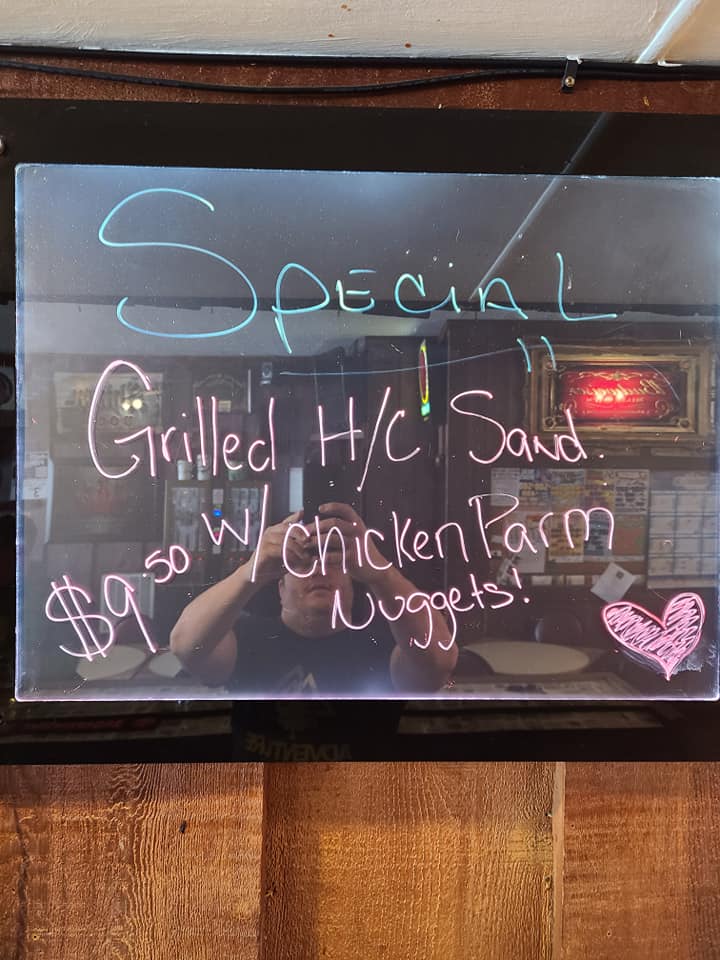 Special
Grilled H/C Sand.
$9.50 w/ Chicken Parm
Nuggets!
Budweiser
ADVENTURE